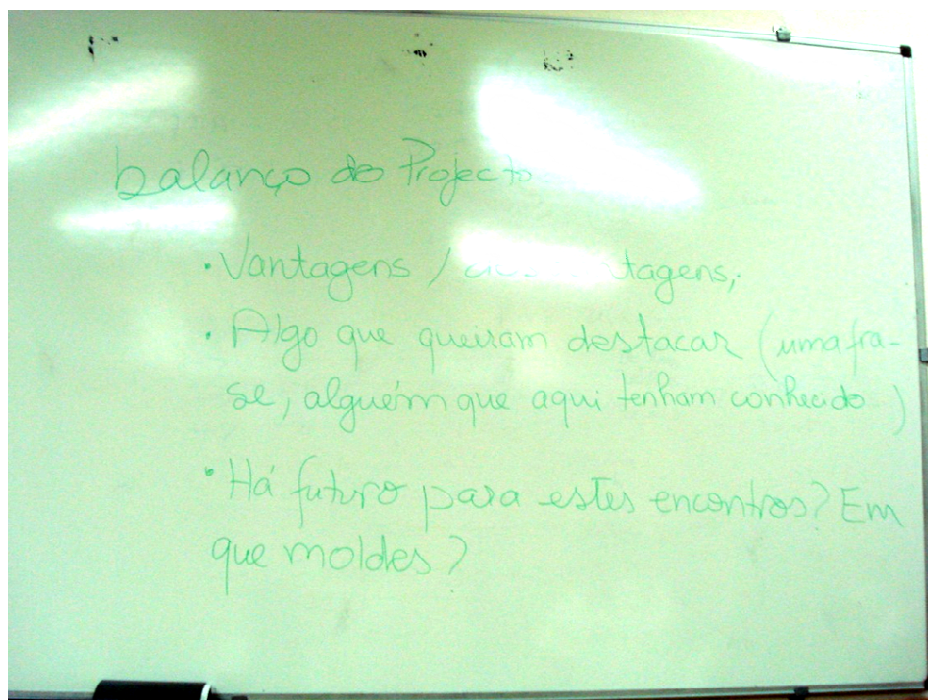 balanço do Projecto
· Vantagens / desvantagens;
· Algo que queiram destacar (uma fra-
se, alguém que aqui tenham conhecido)
· Há futuro para estes encontros? Em
que moldes?